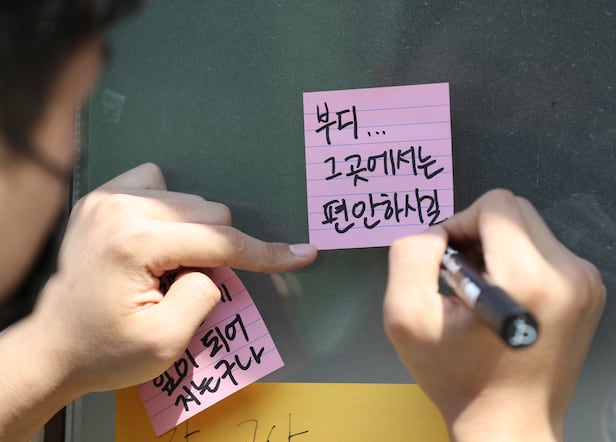 부디...
그곳에서는
편안하시길
잎이 되어
지는구나